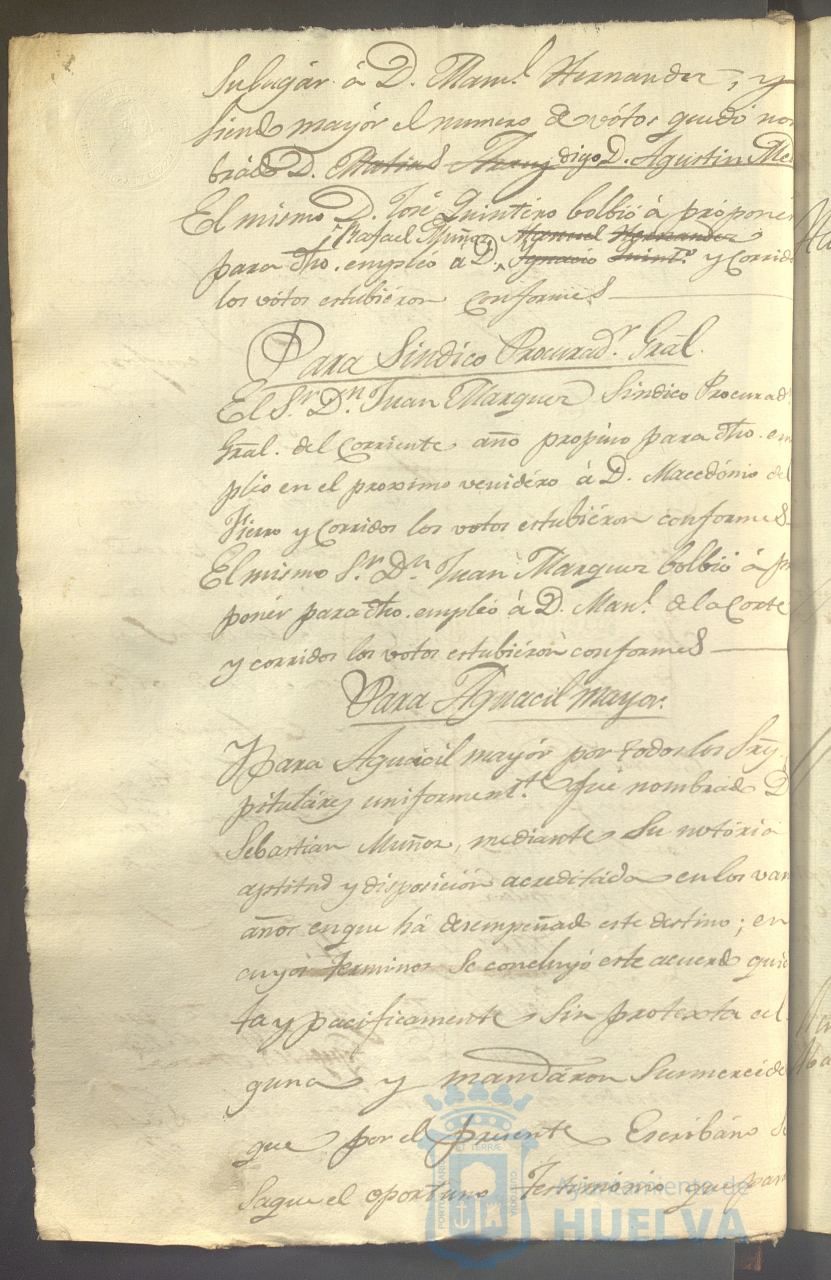 su lugár á D. Man.l Hernandez, y
siendo mayór el numero de vótos quedó nom
brado D. Matias Fernz digo D. Agustin Me
El mismo D. José Quintéro bolbió á proponér
Rafael Muñoz, Manuel Hernandez
para dho. empléo á D. Ignacio Quint.o y corrido
los vótos estubiéron conformes
Para Sindico Procurad.r Grál.
El S.r D.n Juan Marquez Sindico Procurad.r
Grál. del Corriente año propuso para dho. em
pléo en el proximo venidéro á D. Macedónio del
Fierro y corridos los votos estubiéron conformes
El mismo S.r D.n Juan Marquez bolbió á pro
ponér para dho. empléo á D. Man.l de la Corte
y corridos los votos estubiéron conformes
Para Aguacil mayor.
Para Aguacil mayór por todos los Sres
pituláres uniformem.te fué nombrado D
Sebastian Muñoz, mediante su notória
aptitud y disposición acreditada en los vari
años en que há desempeñado este destino; en
cuyos terminos se concluyó este acuerdo quie
ta y pacificamente sin protexta al
guna y mandáron Sus mercedes
que por el presente Escribáno se
saque el oportuno Testimónio que para
PORTUS MARIS ET TERRAE CUSTODIA
Ayuntamiento de
HUELVA